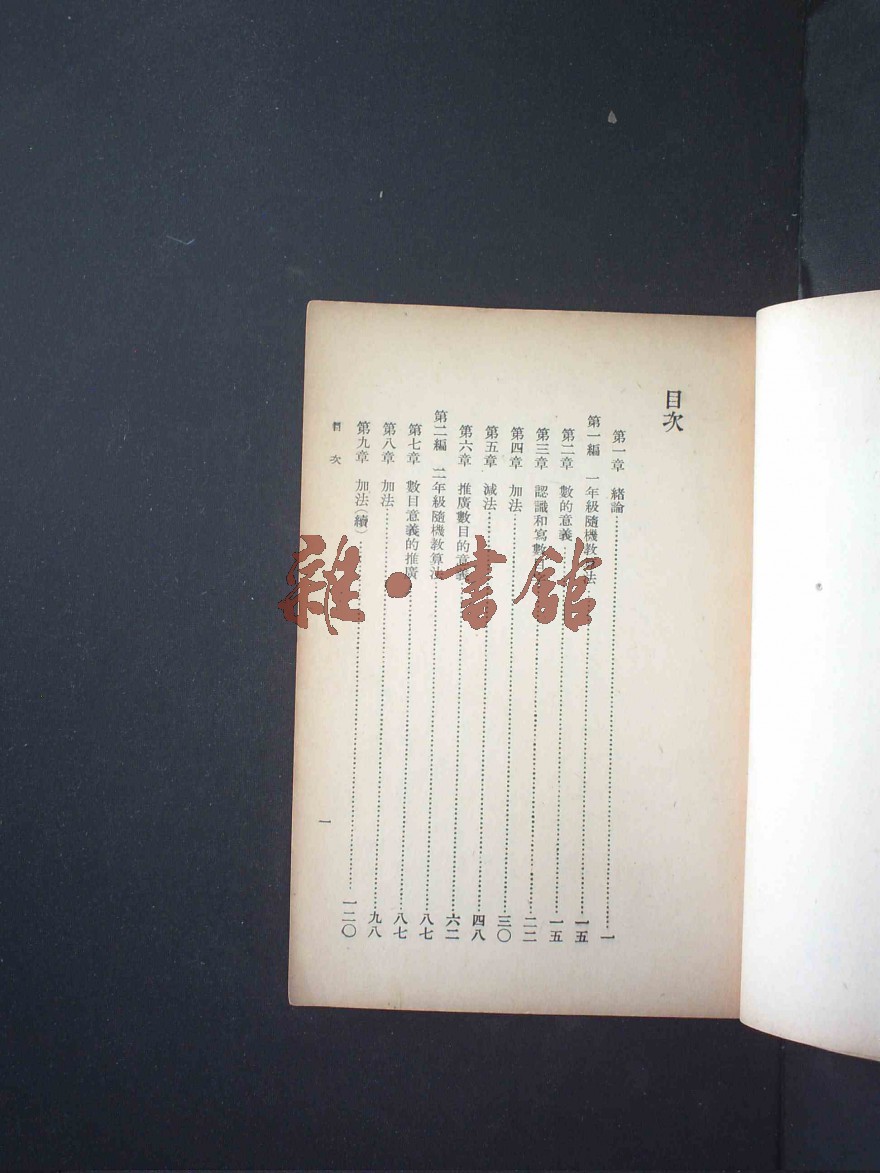 目次
第一章 緒論…………一
第一編 一年級隨機教算法…………一五
第二章 數的意義…………一五
第三章 認識和寫數目…………二二
第四章 加法…………三〇
第五章 減法…………四八
第六章 推廣數目的意義…………六二
第二編 二年級隨機教算法…………八七
第七章 數目意義的推廣…………八七
第八章 加法…………九八
第九章 加法（續）…………一二〇
目次
一
雜·書館